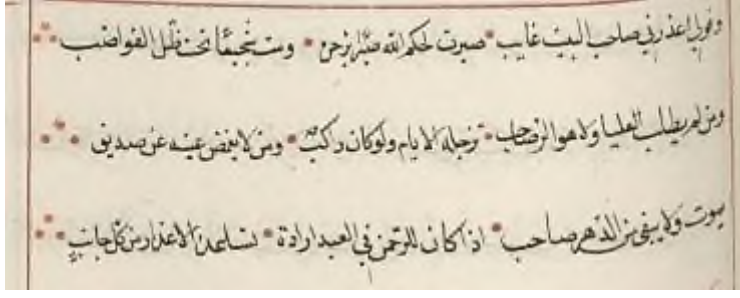 وقولي اعذرني صاحب البيت غايب * صبرت لحكم الله صبر * ومت تحت ظل القواضب
ومن لم يطلب العليا ولا هو * ترجله الايام ولو كان راكب * ومن لا يغمض عينه عن صديق
يموت ولا يبقى من الدهر صاحب * اذا كان للرحمن في العبد ارادة * الاعذار من كل جانب